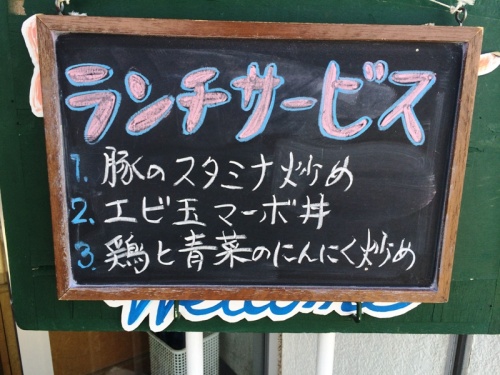 ランチサービス
1. 豚のスタミナ炒め
2. エビ玉マーボ丼
3. 鶏と青菜のにんにく炒め
Welcome